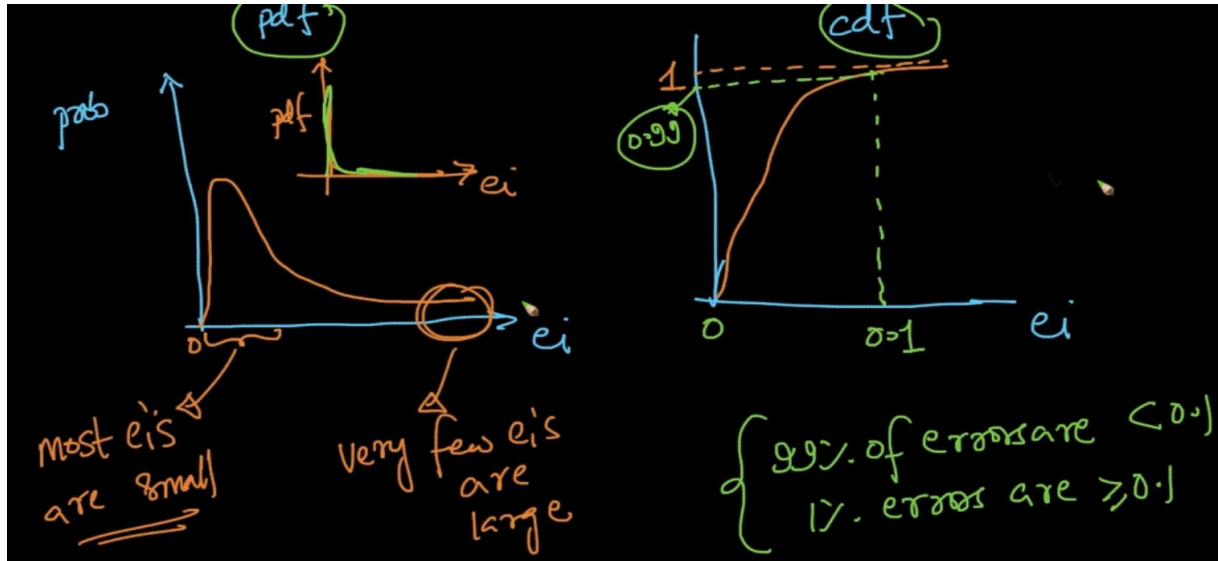 pdf
prob
pdf
ei
0
ei
most ei's
are small
very few ei's
are
large
cdf
1
0.99
0
0.1
ei
99% of errors are <0.1
1% errors are ≥0.1